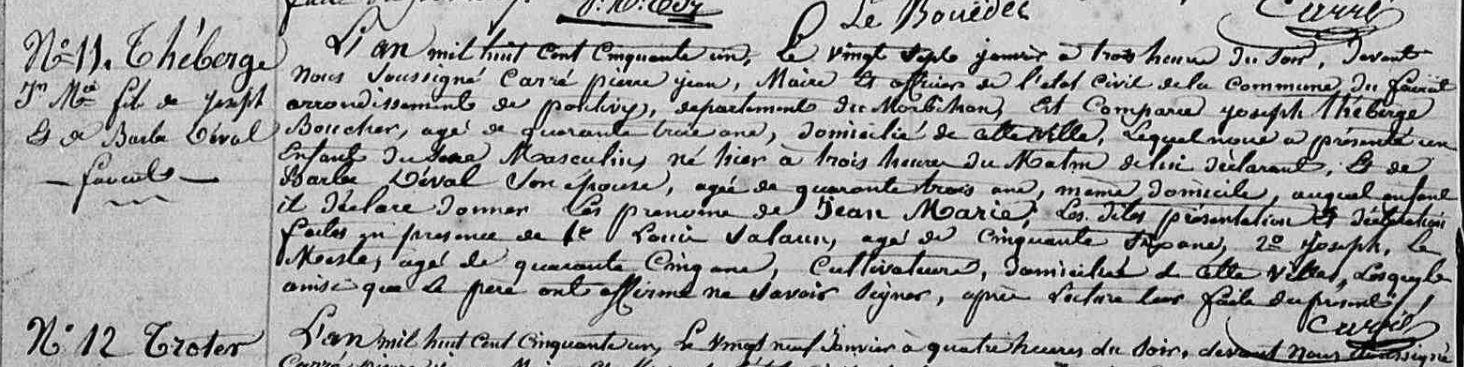 Le Bouëdec
Carré
N° 11. Théberge
Jn Mie fils de Joseph
& de Barbe Déval
faouet
L'an mil huit cent cinquante un, le vingt sept janvier à trois heures du soir, devant
nous soussigné Carré pierre jean, Maire & officier de l'état civil de la commune du faouët
arrondissement de pontivy, departement du Morbihan, Est Comparu joseph théberge
Boucher, agé de quarante trois ans, domicilié de cette ville, lequel nous a présenté un
Enfant du sexe Masculin, né hier à trois heures du Matin de lui déclarant, & de
Barbe Déval son épouse, agée de quarante trois ans, même domicile, auquel enfant
il déclare donner les prenoms de Jean Marie. Les dites présentation & declaration
faites en presence de 1° Louis Salaun, agé de cinquante ans, 2° joseph, Le
Mesle, agé de quarante cinq ans, cultivateurs, domiciliés de cette ville, Lesquels
ainsi que le père ont affirmé ne savoir signer, après lecture leur faite du présent
Carré
N° 12 Troter
L'an mil huit cent cinquante un, le vingt neuf Janvier à quatre heures du soir, devant nous soussigné
Carré pierre